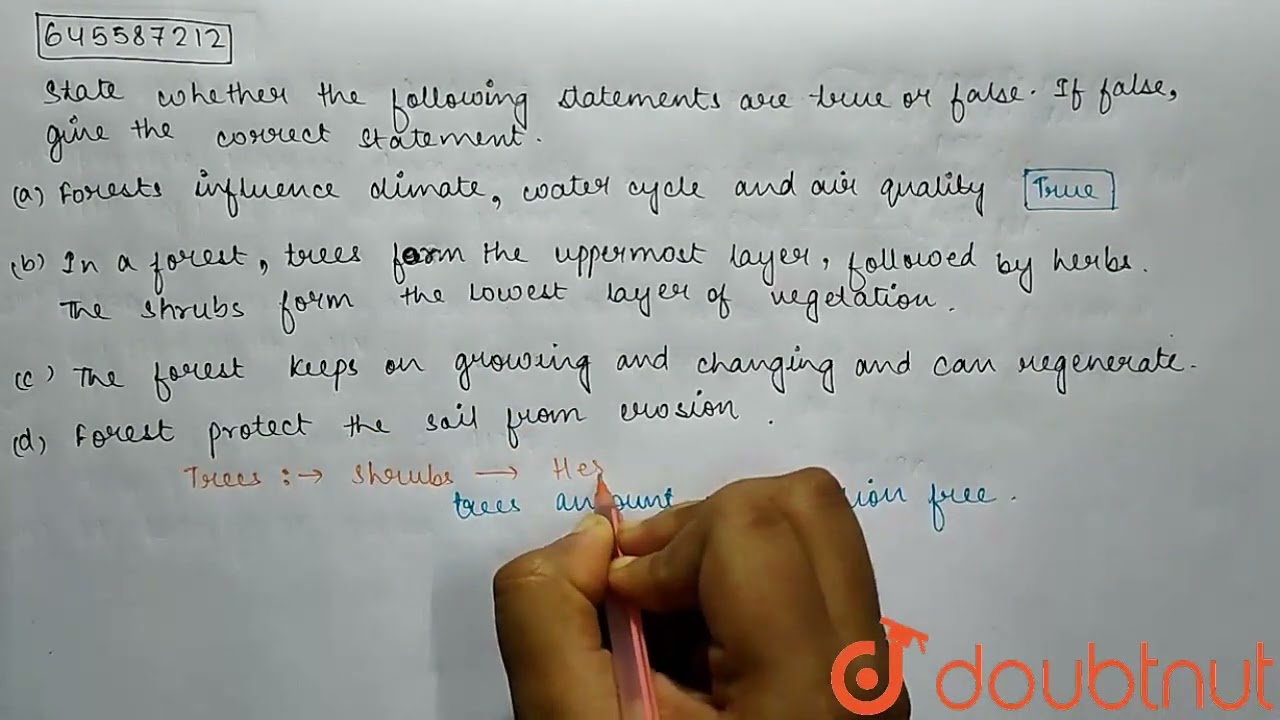 645587212
State whether the following statements are true or false. If false,
give the correct statement.
(a) Forests influence climate, water cycle and air quality True
(b) In a forest, trees form the uppermost layer, followed by herbs.
The shrubs form the lowest layer of vegetation.
(c) The forest keeps on growing and changing and can regenerate.
(d) Forest protect the soil from erosion.
Trees :→ Shrubs → Her
trees amount free.
doubtnut